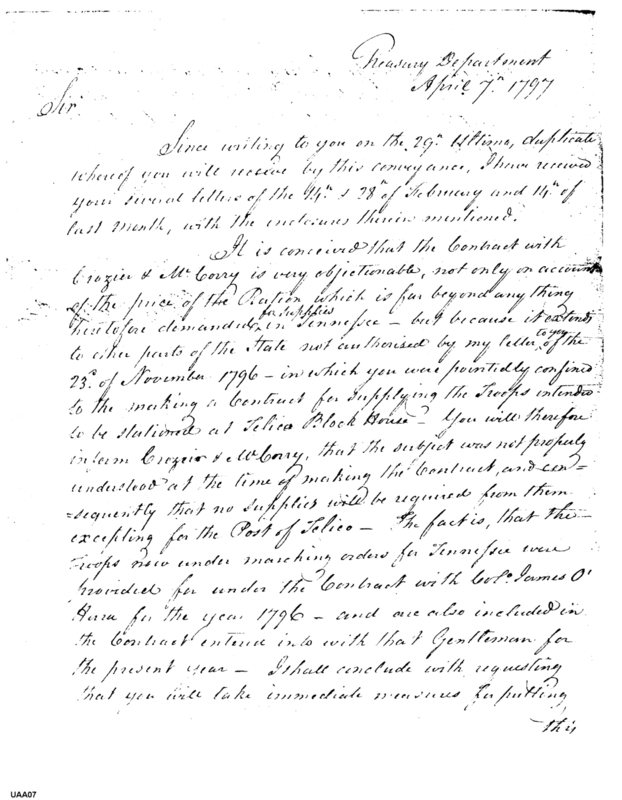 Treasury Department
April 7th 1797
Sir
Since writing to you on the 29th Ultimo, duplicate
whereof you will receive by this conveyance, I have received
your several letters of the 24th & 28th of February and 14th of
last month, with the enclosures therein mentioned.
It is conceived that the Contract with
Crozier & McCorry is very objectionable, not only on account
of the price of the Ration which is far beyond any thing
for supplies
heretofore demanded in Tennessee – but because it extends
to you
to other parts of the State not authorised by my letter of the
23d of November 1796 – in which you were pointedly confined
to the making a Contract for supplying the Troops intended
to be stationed at Telico Block House – You will therefore
inform Crozier & McCorry, that the subject was not properly
understood at the time of making the Contract, and con=
=sequently that no supplies will be required from them
excepting for the Post of Telico – The fact is, that the
troops now under marching orders for Tennessee were
provided for under the Contract with Colo James O'
Harra for the year 1796 – and are also included in
the Contract entered into with that Gentleman for
the present year – I shall conclude with requesting
that you will take immediate measures for putting
this
UAA07